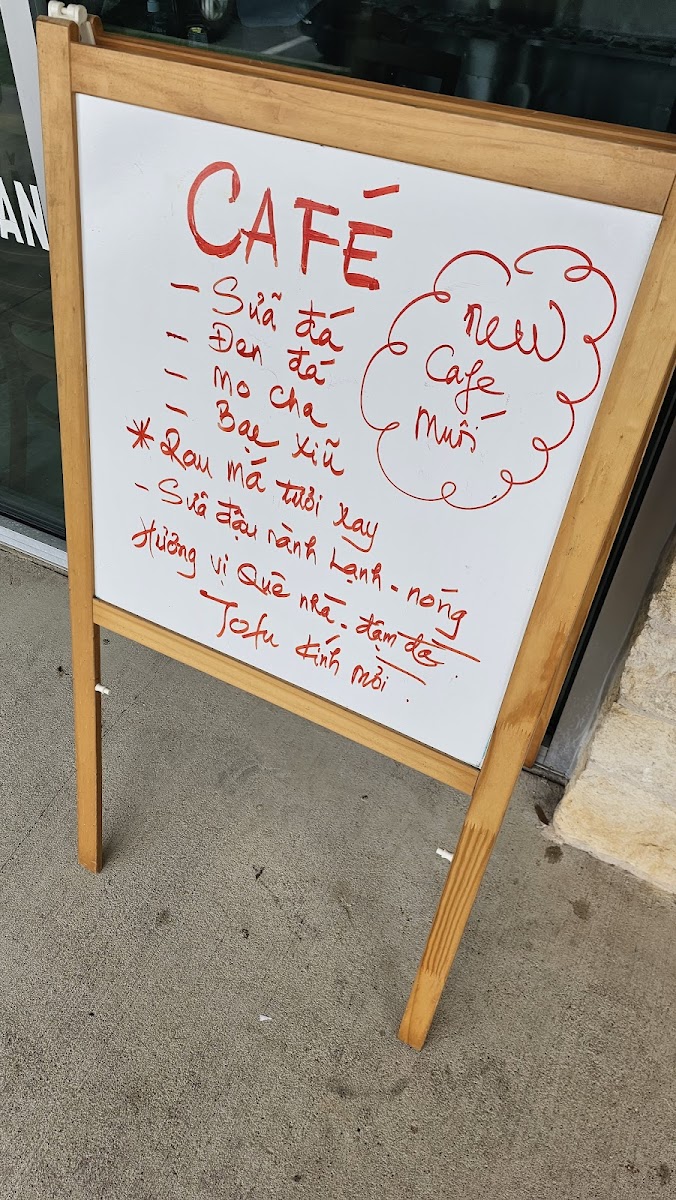 AN
CAFÉ
- Sữa đá
- Đen đá
- Mo cha
- Bạc xiũ
* Rau má tười xay
- Sữa đậu nành Lạnh - nóng
Hương vị Quê nhà - đậm đà.
Tofu Kính mời.
new
Cafe
muối